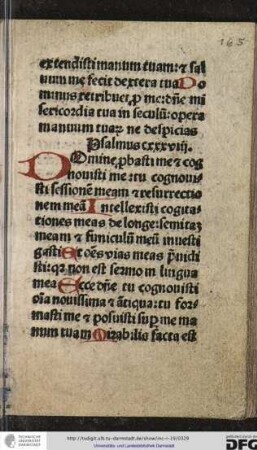 165
extendisti manum tuam: et sal
uum me fecit dextera tua Do
minus retribuet ꝓ me: dñe mi
sericordia tua in seculũ: opera
manuum tuaꝝ ne despicias
Psalmus cxxxviij
Domine, ꝓbasti me et cog
nouisti me: tu cognoui
sti sessionẽ meam et resurrectio
nem meã Intellexisti cogita
tiones meas de longe: semitaʒ
meam et funiculũ meũ inuesti
gasti Et oẽs vias meas p̃uidi
sti: qꝛ non est sermo in lingua
mea Ecce dñe tu cognouisti
oĩa nouissima et ãtiqua: tu for
masti me et posuisti suꝑ me ma
num tuam Mirabilis facta est
http://tudigit.ulb.tu-darmstadt.de/show/
Universitäts- und Landesbibliothek Darmstadt
TECHNISCHE UNIVERSITÄT DARMSTADT
DFG